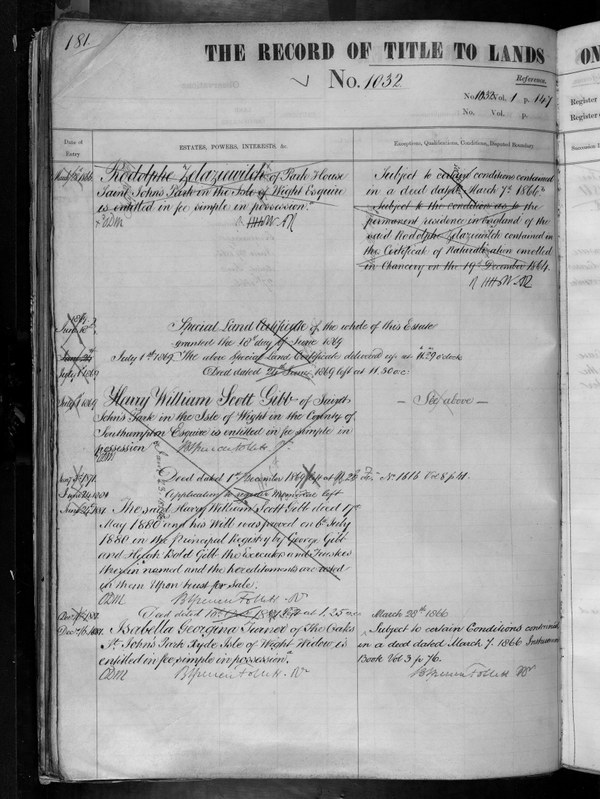 181
THE RECORD OF TITLE TO LANDS
ON
No. 1032
Reference.
No. 1032 Vol. 1 p. 147
No. Vol. p.
Register
Register
Date of
Entry
ESTATES, POWERS, INTERESTS, &c.
Exceptions, Qualifications, Conditions, Disputed Boundary
Succession
Rodolphe Zglazewitch of Park House
Saint Johns Park in the Isle of Wight Esquire
is entitled in fee simple in possession.
Subject to certain conditions contained
in a deed dated March 7th 1866
Subject to the condition as to the
permanent residence in England of the
said Rodolphe contained in
the Certificate of Naturalization enrolled
in Chancery on the 19th December 1864.
1869
June 18
Special Land Certificate of the whole of this Estate
granted the 18th day of June 1869
July 1st 1869. The above Special Land Certificate delivered up at o'clock
July 1 1869
Deed dated June 1869 left at 11.30 o'c
July 1 1869
Harry William Scott Gibb of Saint
Johns Park in the Isle of Wight in the County of
Southampton Esquire is entitled in fee simple in
possession
— See above —
Deed dated 1st December 1869 left at No 1616 Vol 8 p 41.
Application to left
The said Harry William Scott Gibb died 17
May 1880 and his Will was proved on 6th July
1880 in the Principal Registry by George Gibb
and Hugh Gibb the Executors and Trustees
therein named and the hereditaments are vested
in them Upon trust for Sale.
ADM B Spencer Follett R
1881 left at 1.25
March 28th 1866
Dec 16 1881. Isabella Georgina of The Oaks
St Johns Park Ryde Isle of Wight Widow is
entitled in fee simple in possession.
Subject to certain Conditions contained
in a deed dated March 7. 1866 Instrument
Book Vol 3 p 76.
ADM B Spencer Follett R
B Spencer Follett R